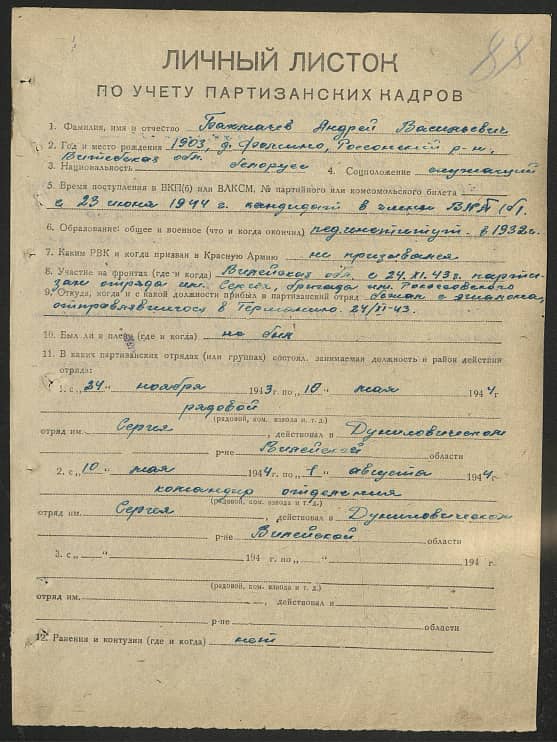 88
ЛИЧНЫЙ ЛИСТОК
ПО УЧЕТУ ПАРТИЗАНСКИХ КАДРОВ
1. Фамилия, имя и отчество Бахмачев Андрей Васильевич
2. Год и место рождения 1903, д. Россонский р-н,
Витебская обл.
3. Национальность белорус 4. Соцположение служащий
5. Время поступления в ВКП(б) или ВЛКСМ, № партийного или комсомольского билета
с 23 июня 1944 г. кандидат в члены
6. Образование: общее и военное (что и когда окончил) пединститут в 1932 г.
7. Каким РВК и когда призван в Красную Армию не призывался
8. Участие на фронтах (где и когда) Вилейская обл. с 24.XI.43 г. парти-
зан отряда им. Сергея, бригада им. Рокосовского
9. Откуда, когда и с какой должности прибыл в партизанский отряд бежал с эшелона,
отправлявшегося в Германию. 24/XI-43.
10. Был ли в плену (где и когда) не был
11. В каких партизанских отрядах (или группах) состоял, занимаемая должность и район действия
отряда:
1. с „24“ ноября 1943 г. по „10“ мая 1944 г.
рядовой
(рядовой, ком. взвода и т. д.)
отряд им. Сергея, действовал в Дуниловическом
р-не Вилейской области
2. с „10“ мая 1944 г. по „1“ августа 1944 г.
командир отделения
(рядовой, ком. взвода и т. д.)
отряд им. Сергея, действовал в Дуниловическом
р-не Вилейской области
3. с „ “ 194 г. по „ “ 194 г.
(рядовой, ком. взвода и т. д.)
отряд им. , действовал в
р-не области
12. Ранения и контузии (где и когда) нет